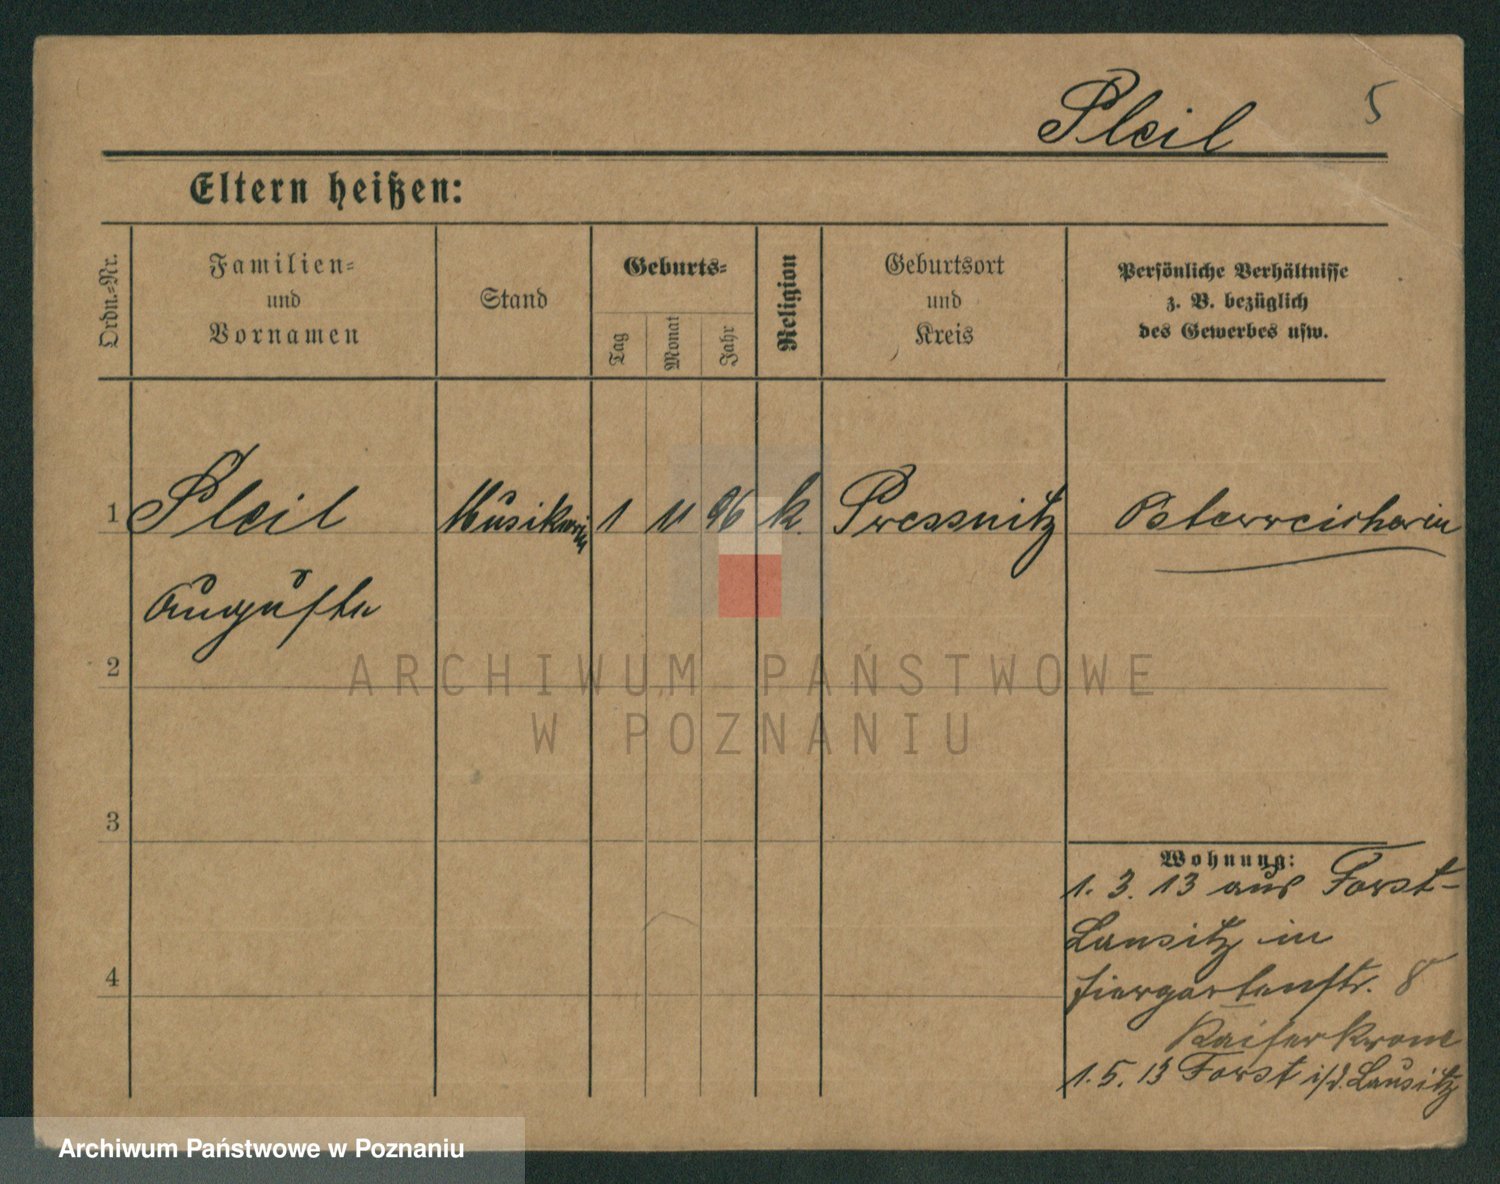 Pleil
5
Eltern heißen:
Ordn.-Nr.
Familien-
und
Vornamen
Stand
Geburts-
Tag
Monat
Jahr
Religion
Geburtsort
und
Kreis
Persönliche Verhältnisse
z. B. bezüglich
des Gewerbes usw.
1 Pleil Musikerin 1 11 96 k. Pressnitz Österreicherin
Augusta
2
ARCHIWUM PAŃSTWOWE
W POZNANIU
3
Wohnung:
1. 3. 13 aus Forst-
Lausitz in
Tiergartenstr. 8
4
Kaiserkrone
1. 5. 13 Forst i/d. Lausitz
Archiwum Państwowe w Poznaniu